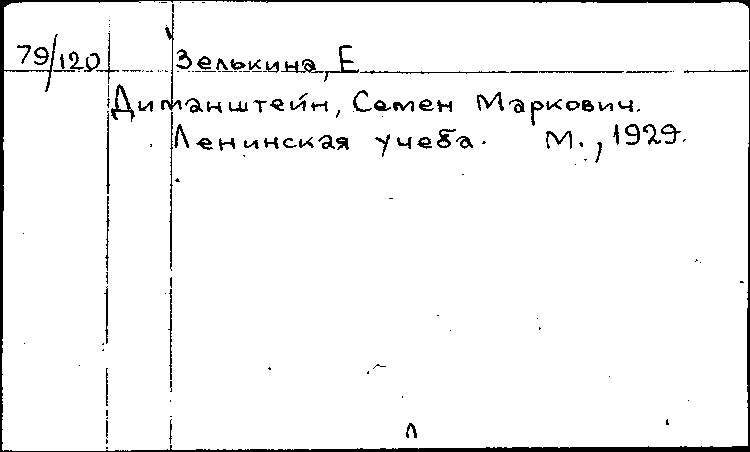 79/120 Зелькина, Е
Диманштейн, Семен Маркович.
Ленинская учеба. М., 1929.
Л